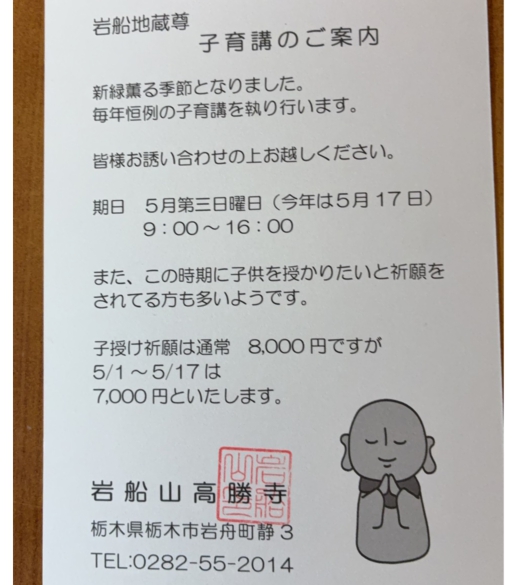 岩船地蔵尊
子育講のご案内
新緑薫る季節となりました。
毎年恒例の子育講を執り行います。
皆様お誘い合わせの上お越しください。
期日　５月第三日曜日（今年は５月１７日）
９：００～１６：００
また、この時期に子供を授かりたいと祈願を
されてる方も多いようです。
子授け祈願は通常　8,000 円ですが
5/1～5/17 は
7,000 円といたします。
岩船山高勝寺
栃木県栃木市岩舟町静３
TEL:0282-55-2014